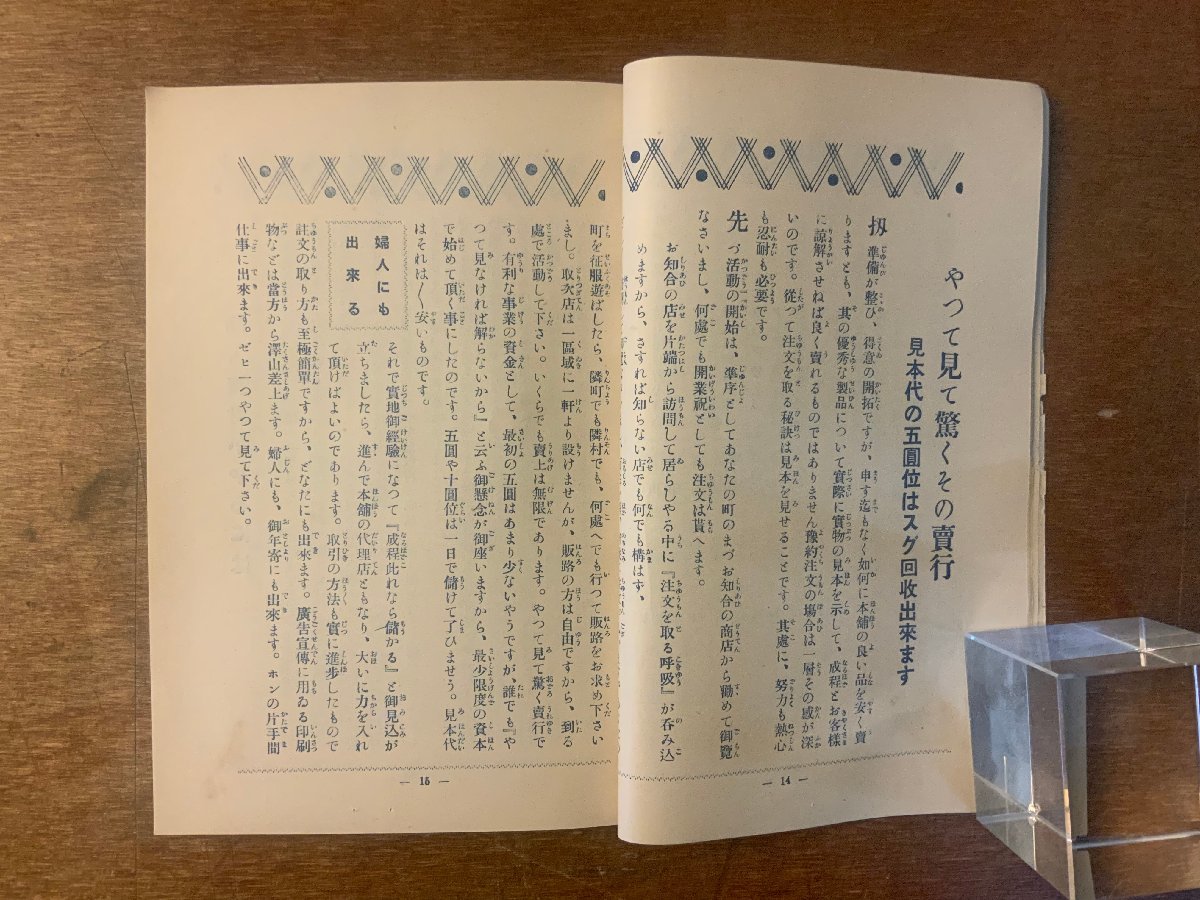 やつて見て驚くその賣行
見本代の五圓位はスグ回收出來ます
扨準備が整ひ、得意の開拓ですが、申す迄もなく如何に本舗の良い品を安く賣
りますとも、其の優秀な製品について實際に實物の見本を示して、成程とお客樣
に諒解させねば良く賣れるものではありません豫約注文の場合は一層その感が深
いのです。從つて注文を取る秘訣は見本を見せることです。其處に、努力も熱心
も忍耐も必要です。
先づ活動の開始は、準序としてあなたの町のまづお知合の商店から勸めて御覽
なさいまし、何處でも開業祝としても注文は貰へます。
お知合の店を片端から訪問して居らしやる中に『注文を取る呼吸』が呑み込
めますから、さすれば知らない店でも何でも構はず、
— 14 —
町を征服遊ばしたら、隣町でも隣村でも、何處へでも行つて販路をお求め下さい
まし。取次店は一區域に一軒より設けませんが、販路の方は自由ですから、到る
處で活動して下さい。いくらでも賣上は無限であります。やつて見て驚く賣行で
す。有利な事業の資金として、最初の五圓はあまり少ないやうですが、誰でも『や
つて見なければ解らないから』と云ふ御懸念が御座いますから、最少限度の資本
で始めて頂く事にしたのです。五圓や十圓位は一日で儲けて了ひませう。見本代
はそれは〱安いものです。
婦人にも
出來る
それで實地御經驗になつて『成程此れなら儲かる』と御見込が
立ちましたら、進んで本舗の代理店ともなり、大いに力を入れ
て頂けばよいのであります。取引の方法も實に進步したもので
註文の取り方も至極簡單ですから、どなたにも出來ます。廣告宣傳に用ゐる印刷
物などは當方から澤山差上ます。婦人にも、御年寄にも出來ます。ホンの片手間
仕事に出來ます。ゼヒ一つやつて見て下さい。
— 15 —